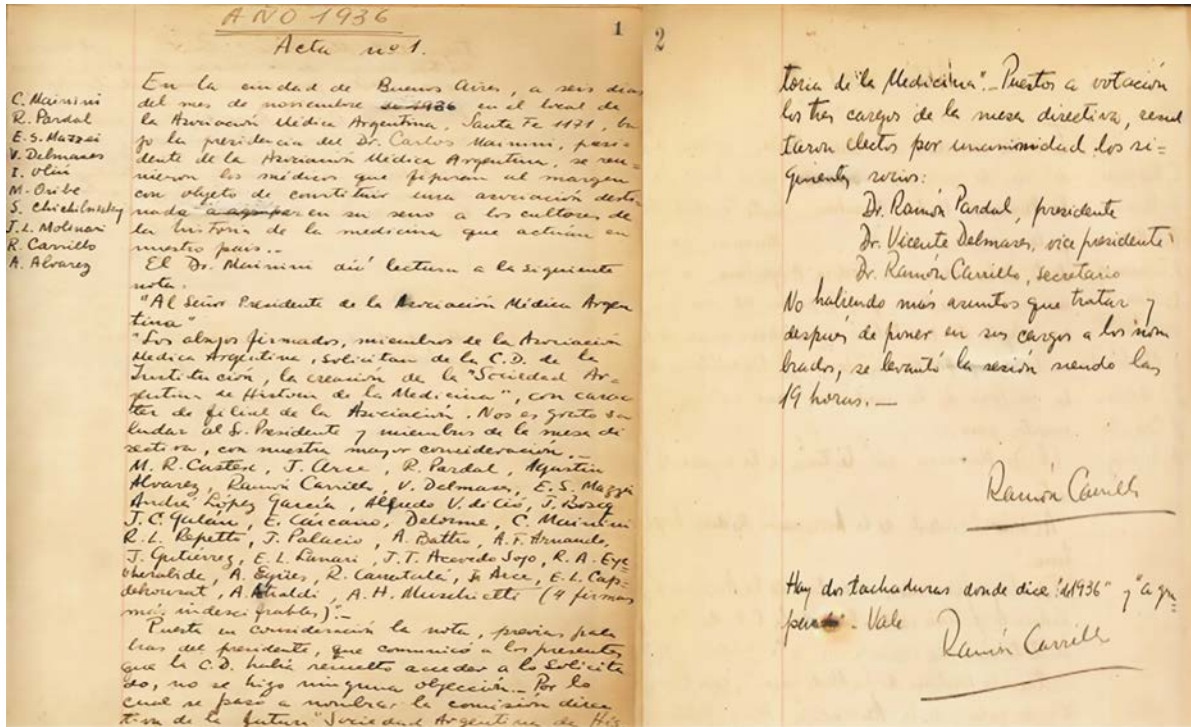 AÑO 1936
1
Acta nº 1.
C. Mainini
R. Pardal
E. S. Mazzei
V. Delmases
I. Olin
M. Oribe
S. Chichilnisky
J. L. Molinari
R. Carrillo
A. Alvarez
En la ciudad de Buenos Aires, a seis dias
del mes de noviembre de 1936 en el local de
la Asociación Médica Argentina, Santa Fe 1171, ba
jo la presidencia del Dr. Carlos Mainini, presi=
dente de la Asociación Médica Argentina, se reu=
nieron los médicos que figuran al margen
con objeto de constituir una asociación desti
nada a agrupar en su seno a los cultores de
la historia de la medicina que actúan en
nuestro pais.-
El Dr. Mainini dió lectura a la siguiente
nota.
"Al Señor Presidente de la Asociación Médica Argen
tina"
"Los abajos firmados, miembros de la Asociación
Medica Argentina, solicitan de la C.D. de la
Institución, la creación de la "Sociedad Ar=
gentina de Historia de la Medicina", con carac
ter de filial de la Asociación. Nos es grato sa
ludar al Sr. Presidente y miembros de la mesa di
rectiva, con nuestra mayor consideración.-
M. R. Castex, J. Arce, R. Pardal, Agustin
Alvarez, Ramón Carrillo, V. Delmases, E. S. Mazzei
André López García, Alfredo V. di Ció, J. Bosq
J. C. Galan, E. Carcano, Delorme, C. Mainini
R. L. Repetto, J. Palacio, A. Battro, A. F. Arnaudo,
J. Gutiérrez, E. L. Lanari, J. T. Acevedo Sojo, R. A. Eye
oherabide, A. Egües, R. Carratalá, Arce, E. L. Cap=
dehourat, A. Atraldi, A. H. Muschietti (4 firmas
más indescifrables)".-
Puesta en consideración la nota, previas pala
bras del presidente, que comunicó a los presentes
que la C.D. había resuelto acceder a lo solicita
do, no se hizo ninguna objeción.- Por lo
cual se pasó a nombrar la comisión direc
tiva de la futura "Sociedad Argentina de His
2
toria de "la Medicina".- Puestos a votación
los tres cargos de la mesa directiva, resul
taron electos por unanimidad los si=
guientes socios:
Dr. Ramón Pardal, presidente
Dr. Vicente Delmases, vice presidente
Dr. Ramón Carrillo, secretario
No habiendo más asuntos que tratar y
después de poner en sus cargos a los nom
brados, se levantó la sesión siendo las
19 horas.-
Ramón Carrillo
Hay dos tachaduras donde dice: "de 1936" y "a agru
par". - Vale
Ramón Carrillo